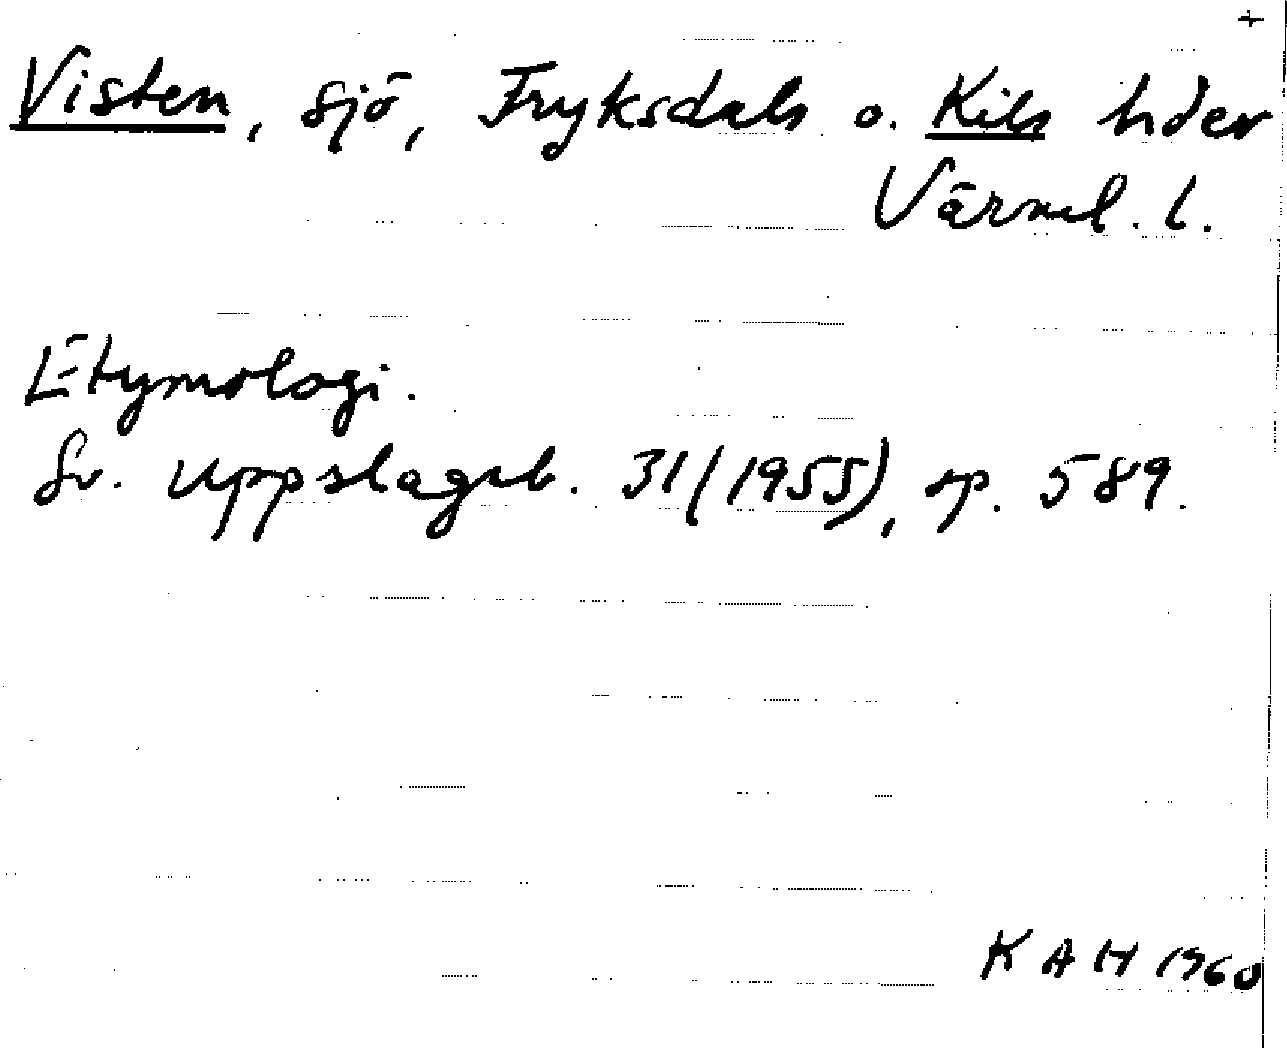 +
Visten, sjö, Fryksdals o. Kils hder
Värml. l.
Etymologi.
Sv. uppslagsb. 31 (1955), sp. 589.
KAH 1960